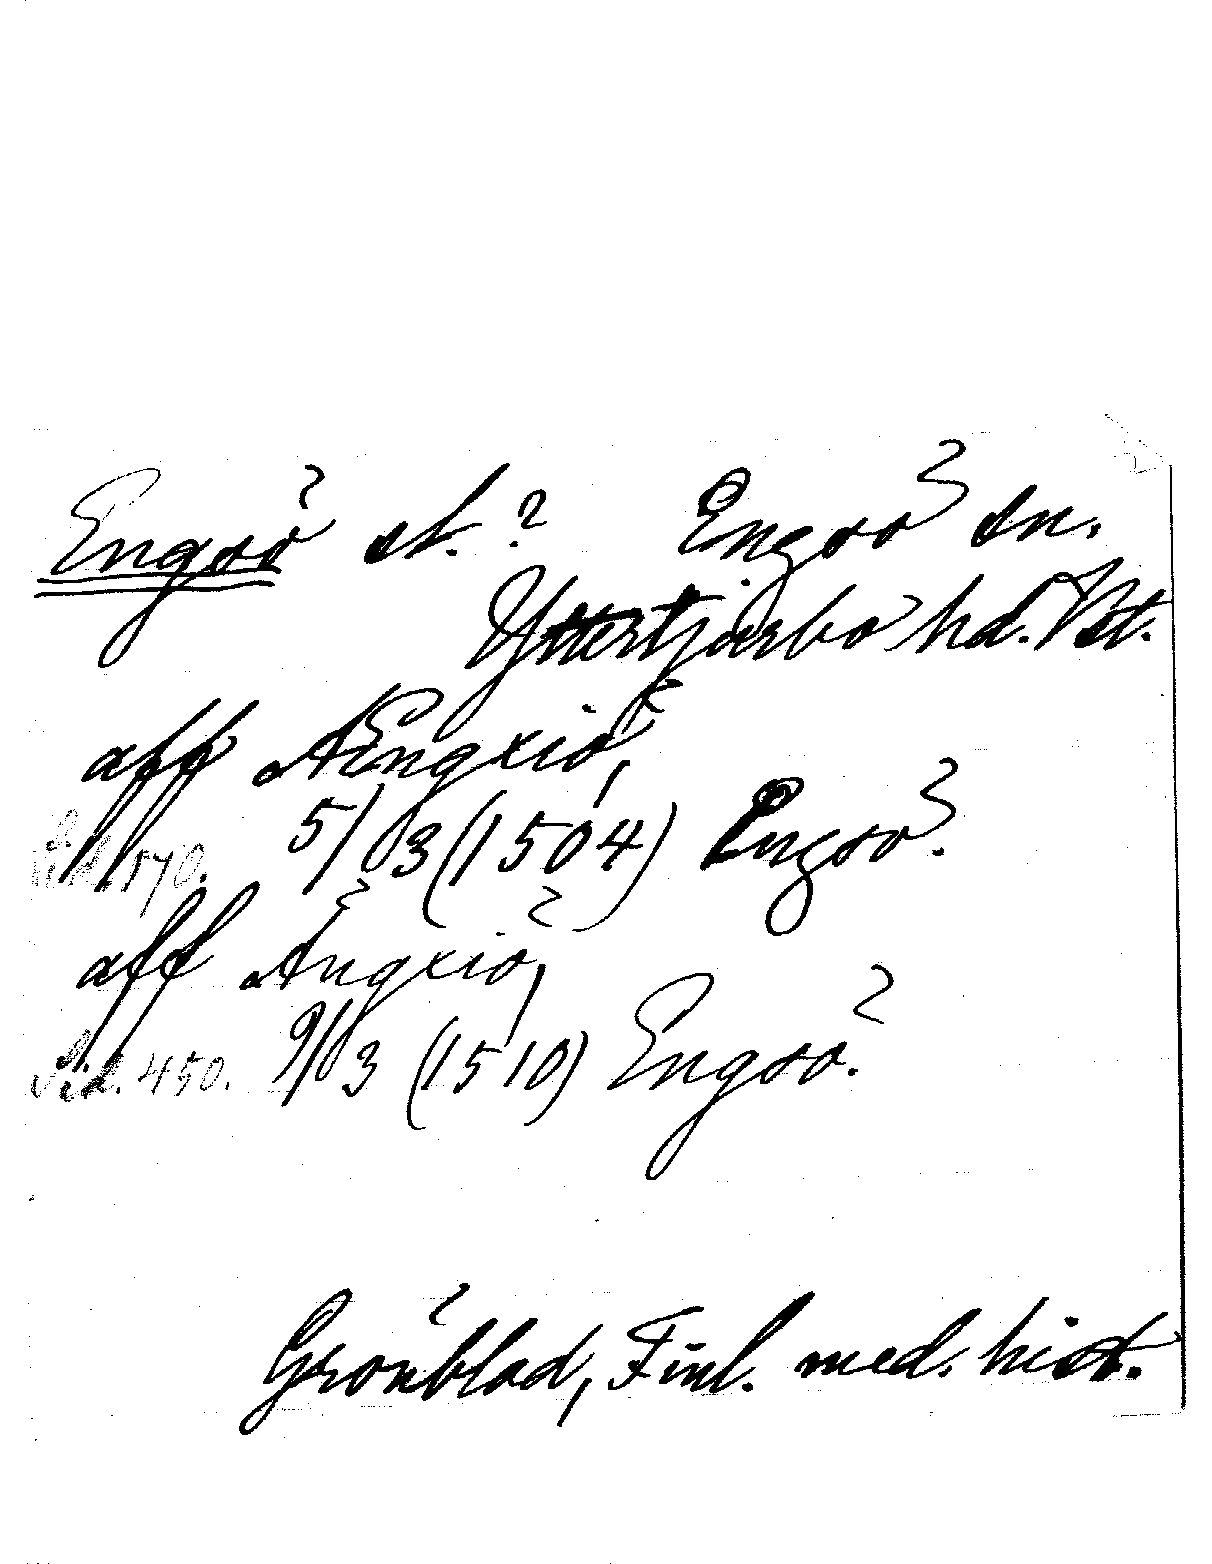 Engsö sl.? Engsö sn.
Yttertjurbo hd. Vst.
aff AEngxiö,
Sid. 570. 5/3 (1504) Engsö.
aff Ängxiö,
Sid. 450. 9/3 (1510) Engsö.
Grönblad, Finl. med. hist.